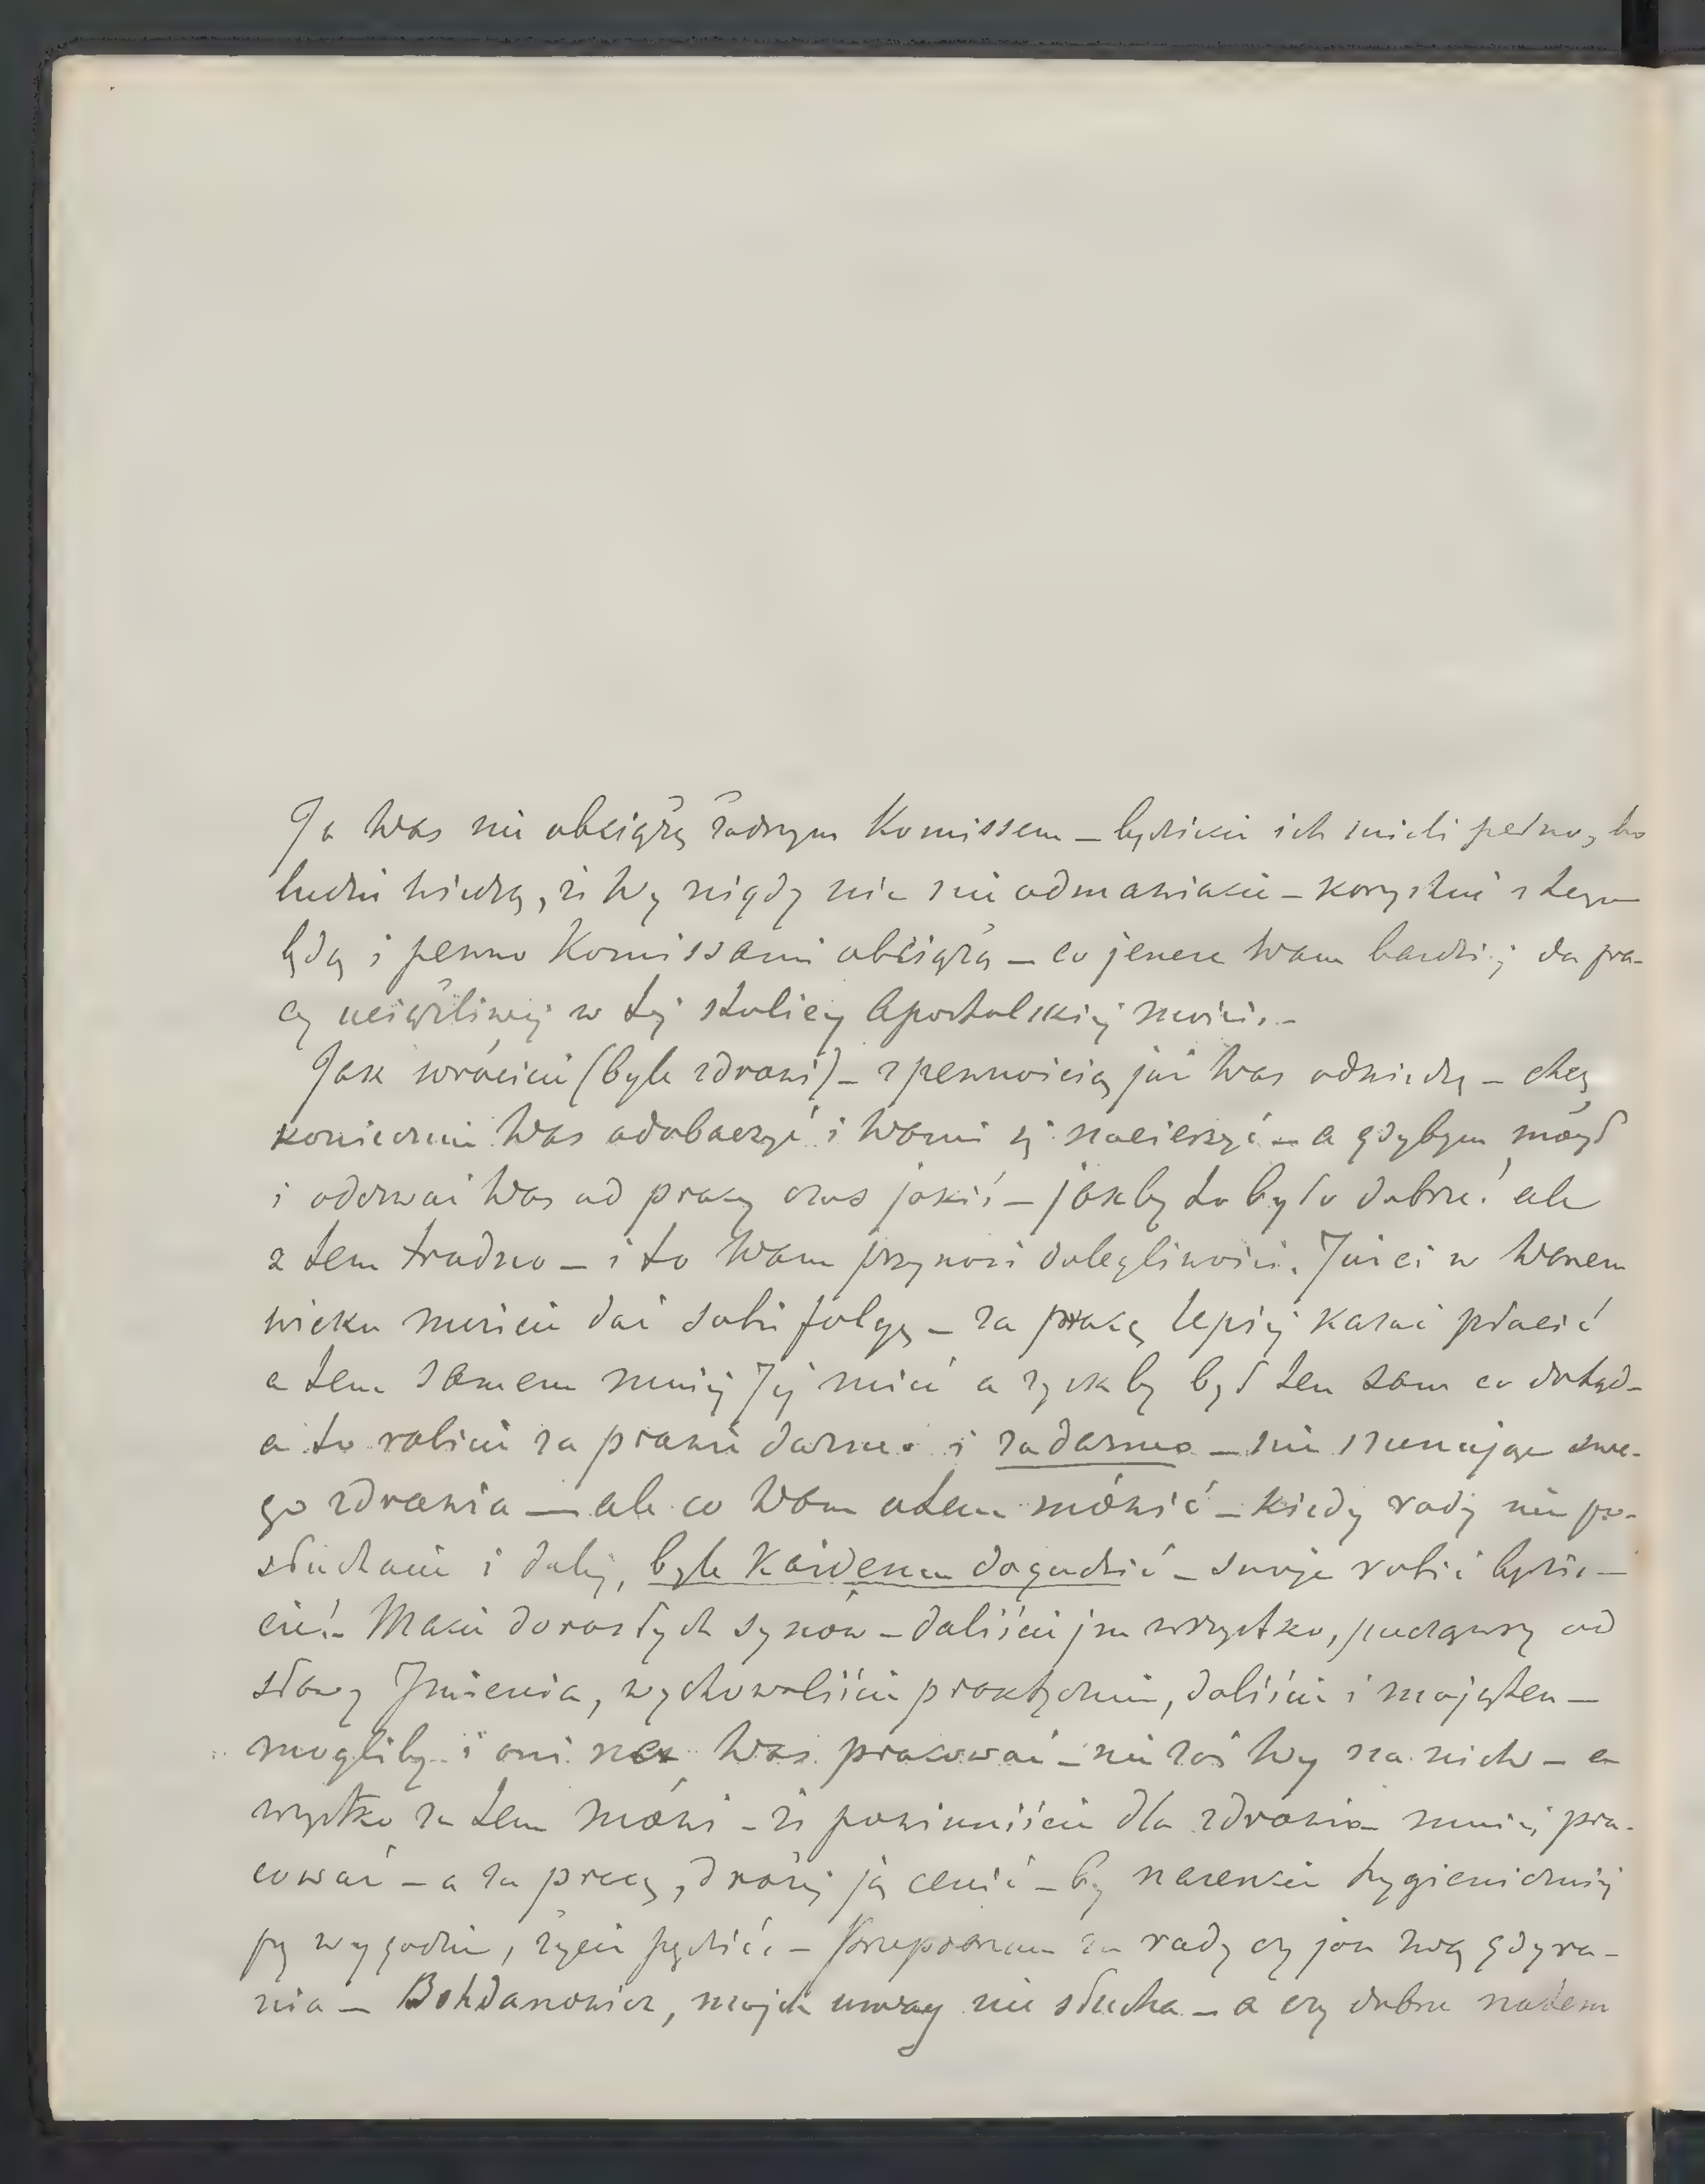 Ja Was nie obciążę żadnym Komissem – będziecie ich mieli pewno, bo
ludzie wiedzą, że Wy nigdy nic nie odmawiacie – korzystać z tego
będą i pewno Komissami obciążą – co jeszcze Wam bardziej da pra-
cy uciążliwej w tej stolicy Apostolskiej mości. –
Jak wrócicie (byle zdrowi) – z pewnością już Was odwiedzę – chcę
koniecznie Was odobaczyć i Wami się nacieszyć – a gdybym mógł
i oderwać Was od pracy czas jakiś – jakby to było dobrze! ale
z tem trudno – i to Wam przynosi dolegliwości. Jużci w Waszem
wieku musicie dać sobie folgę – za pracę lepiej kazać płacić
a tem samem mniej Jej mieć a zysk by był ten sam co dotąd –
a to robicie za prawie darmo i zadarmo – nie szanując swe-
go zdrowia — ale co Wam otem mówić – kiedy rady nie po-
słuchacie i dalej, byle Każdemu dogodzić – swoje robić będzie-
cie! – Macie dorosłych synów – daliście im wszystko, począwszy od
sławy Imienia, wychowaliście praktycznie, daliście i majątek —
mogliby i oni na Was pracować – nie zaś Wy na nich – a
wszystko za tem mówi – że powinniście dla zdrowia mniej pra-
cować – a za pracę, drożej ją cenić – by nareszcie hygieniczniej
wygodnie, życie pędzić. – Przepraszam za rady czy jak zwą gdyra-
nia – Bohdanowicz, mojch uwag nie słucha – a czy dobrze natem